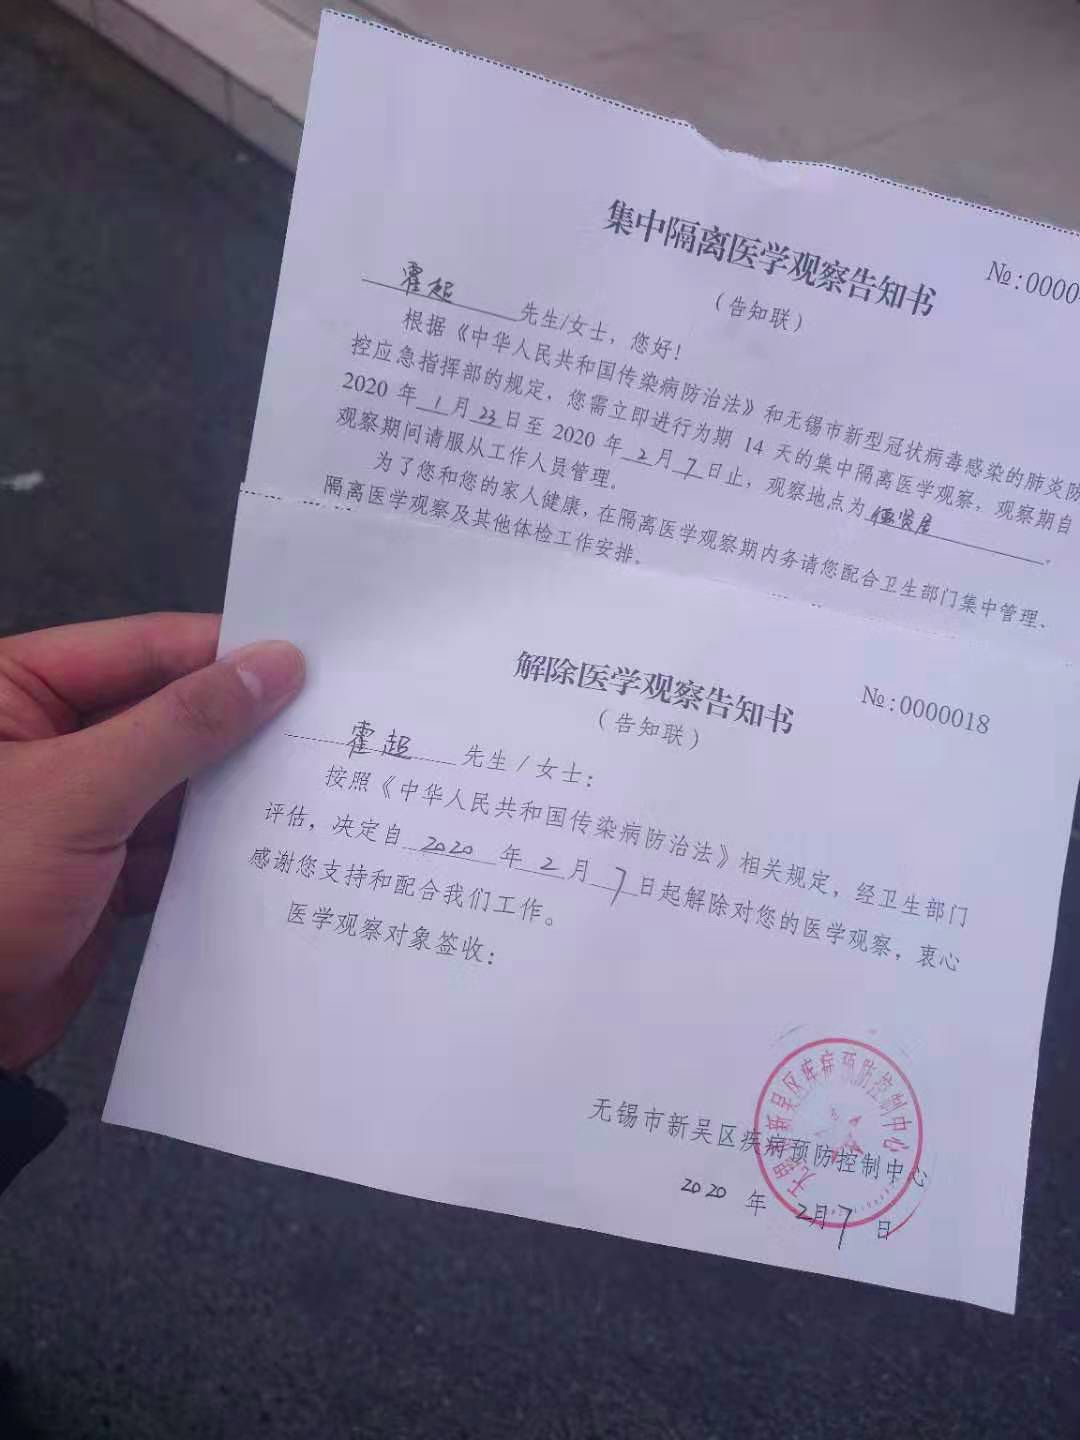 集中隔离医学观察告知书
№:0000
（告知联）
霍超 先生/女士，您好！
根据《中华人民共和国传染病防治法》和无锡市新型冠状病毒感染的肺炎防
控应急指挥部的规定，您需立即进行为期 14 天的集中隔离医学观察，观察期自
2020 年 1 月 23 日至 2020 年 2 月 7 日止，观察地点为德贤居。
观察期间请服从工作人员管理。
为了您和您的家人健康，在隔离医学观察期内务请您配合卫生部门集中管理、
隔离医学观察及其他体检工作安排。
解除医学观察告知书
№:0000018
（告知联）
霍超 先生/女士：
按照《中华人民共和国传染病防治法》相关规定，经卫生部门
评估，决定自 2020 年 2 月 7 日起解除对您的医学观察，衷心
感谢您支持和配合我们工作。
医学观察对象签收：
无锡市新吴区疾病预防控制中心
无锡市新吴区疾病预防控制中心
2020 年 2月7 日